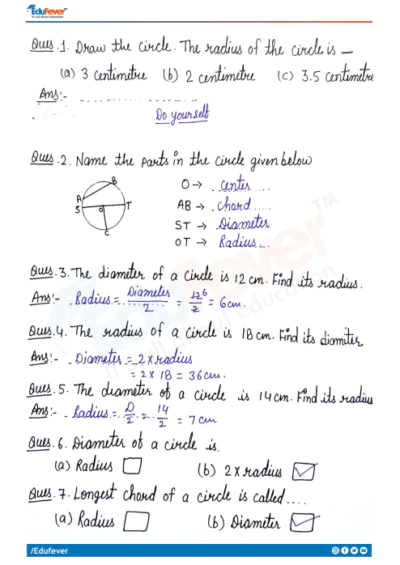 EduFever
Ques.1. Draw the circle. The radius of the circle is —
(a) 3 centimetre (b) 2 centimetre (c) 3.5 centimetre
Ans:- ....................
Do yourself
Ques.2. Name the parts in the circle given below
O → Center....
AB → Chord.....
ST → Diameter
OT → Radius...
A B S O T C
Ques.3. The diameter of a circle is 12 cm. Find its radius.
Ans:- Radius = Diameter/2 = 12/2 6 = 6 cm.
Ques.4. The radius of a circle is 18 cm. Find its diamiter.
Ans:- Diameter = 2 x radius
= 2 x 18 = 36 cm.
Ques.5. The diameter of a circle is 14 cm. Find its radius
Ans:- Radius = D/2 = 14/2 = 7 cm
Ques.6. Diameter of a circle is.
(a) Radius (b) 2 x radius
Ques.7. Longest chord of a circle is called....
(a) Radius (b) Diameter
/Edufever